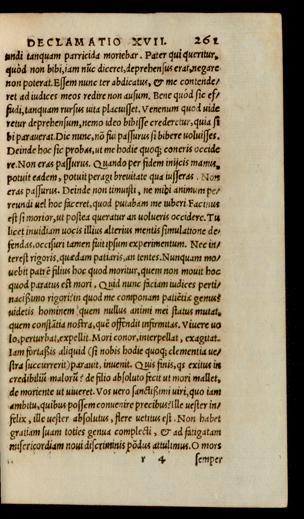 DECLAMATIO XVII. 261
undi tanquam parricida moriebar. Pater qui queritur,
quòd non bibi, iam nūc diceret, deprehensus eras, negare
non poterat. Essem nunc ter abdicatus, & me contende/
ret ad iudices meos redire non ausum. Bene quòd sic ef/
fudi, tanquam rursus uita placuisset. Venenum quod uide
retur deprehensum, nemo ideo bibisse crederetur, quia si
bi parauerat. Dic nunc, nō fui passurus si bibere uoluisses.
Deinde hoc sic probas, ut me hodie quoq; coneris occide
re. Non eras passurus. Quando per fidem inijceis manus,
potuit eadem, potuit peragi breuitate qua iusseras. Non
eras passurus. Deinde non timuisti, ne mihi animum pe/
reundi uel hoc faceret, quod putabam me iuberi. Facinus
est si morior, ut postea queratur an uolueris occidere. Tu
licet inuidiam uocis illius alterius mentis simulatione de/
fendas, occisuri tamen fuit ipsum experimentum. Nec in/
terest rigoris, quædam patiaris, an tentes. Nunquam mo/
uebit patrē filius hoc quod moritur, quem non mouit hoc
quod paratus est mori. Quid nunc faciam iudices perti/
nacissimo rigori? in quod me componam patiētiæ genus?
uidetis hominem quem nullus animi mei status mutat,
quem constātia nostra, quē offēndit infirmitas. Viuere uo
lo, perturbat, expellit. Mori conor, interpellat, exagitat.
Iam fortassis aliquid (si nobis hodie quoq; clementia ue/
stra succurrerit) parauit, inuenit. Quis finis, qs exitus in
credibiliū malorū? de filio absoluto fecit ut mori mallet,
de moriente ut uiueret. Vos uero sanctissimi uiri, quo iam
ambitu, quibus possem conuenire precibus? Ille uester in/
felix, ille uester absolutus, flere uetitus est. Non habet
gratiam suam toties genua complecti, & ad fatigatam
misericordiam noui discriminis pōdus attulimus. O mors
r 4 semper